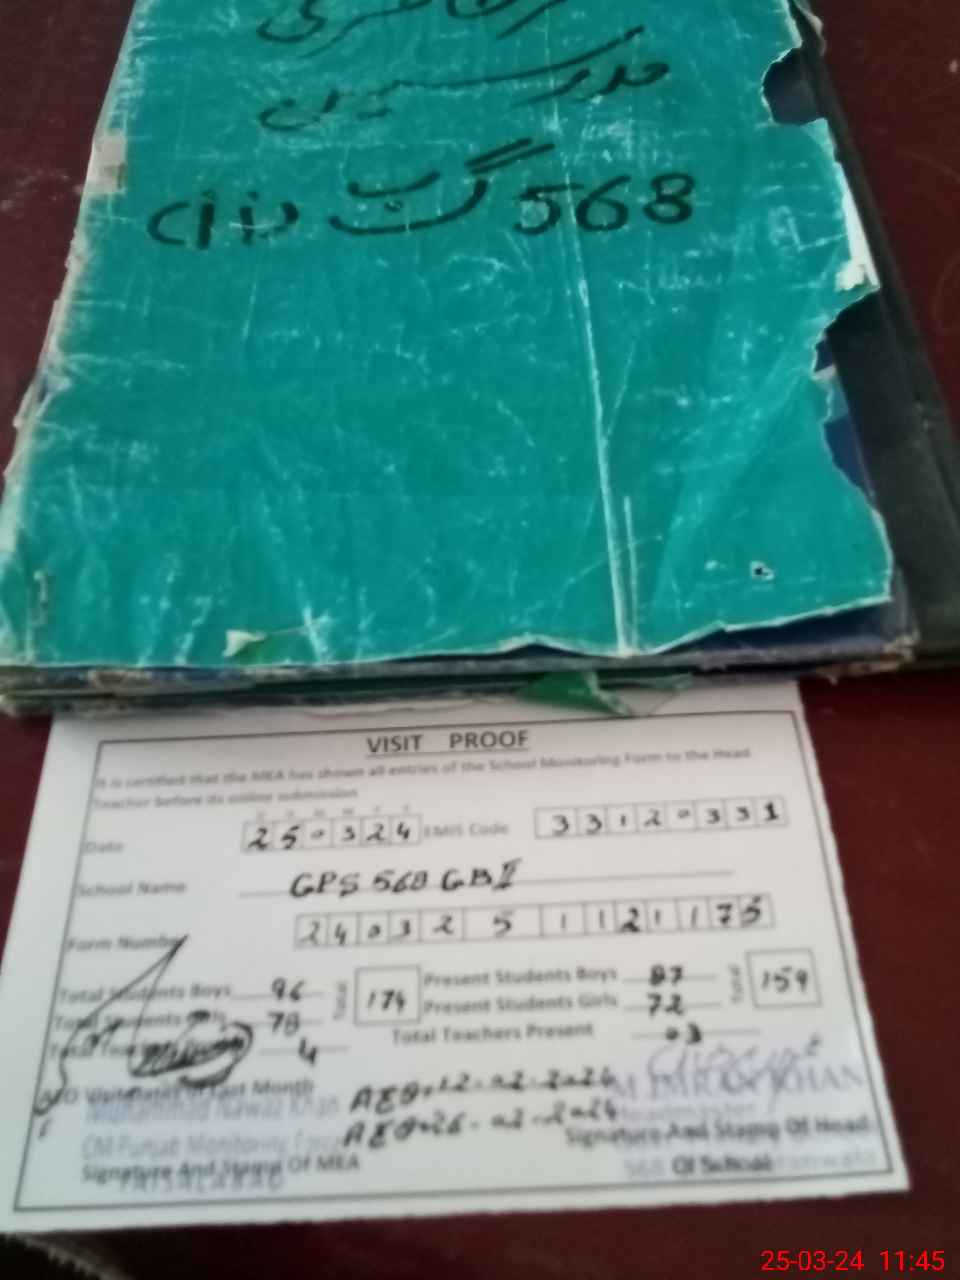 مدرسین
568 گ ب (ii)
VISIT PROOF
It is certified that the MEA has shown all entries of the School Monitoring Form to the Head
Teacher before its online submission
Date 250324 EMIS Code 33120331
School Name GPS 568 GB II
Form Number 2403251121175
Total Students Boys 96 Total 174 Present Students Boys 87 Total 159
Total Students Girls 78 Present Students Girls 72
Total 4 Total Teachers Present 03
AEO Visit Dates of Last Month AEO 12-02-2024
AEO 26-02-2024
M. IMRAN KHAN
Headmaster
Muhammad Nawaz Khan
CM Punjab Monitoring Force
FAISALABAD
Signature And Stamp Of MEA
Signature And Stamp Of Head
568 Of School
25-03-24 11:45